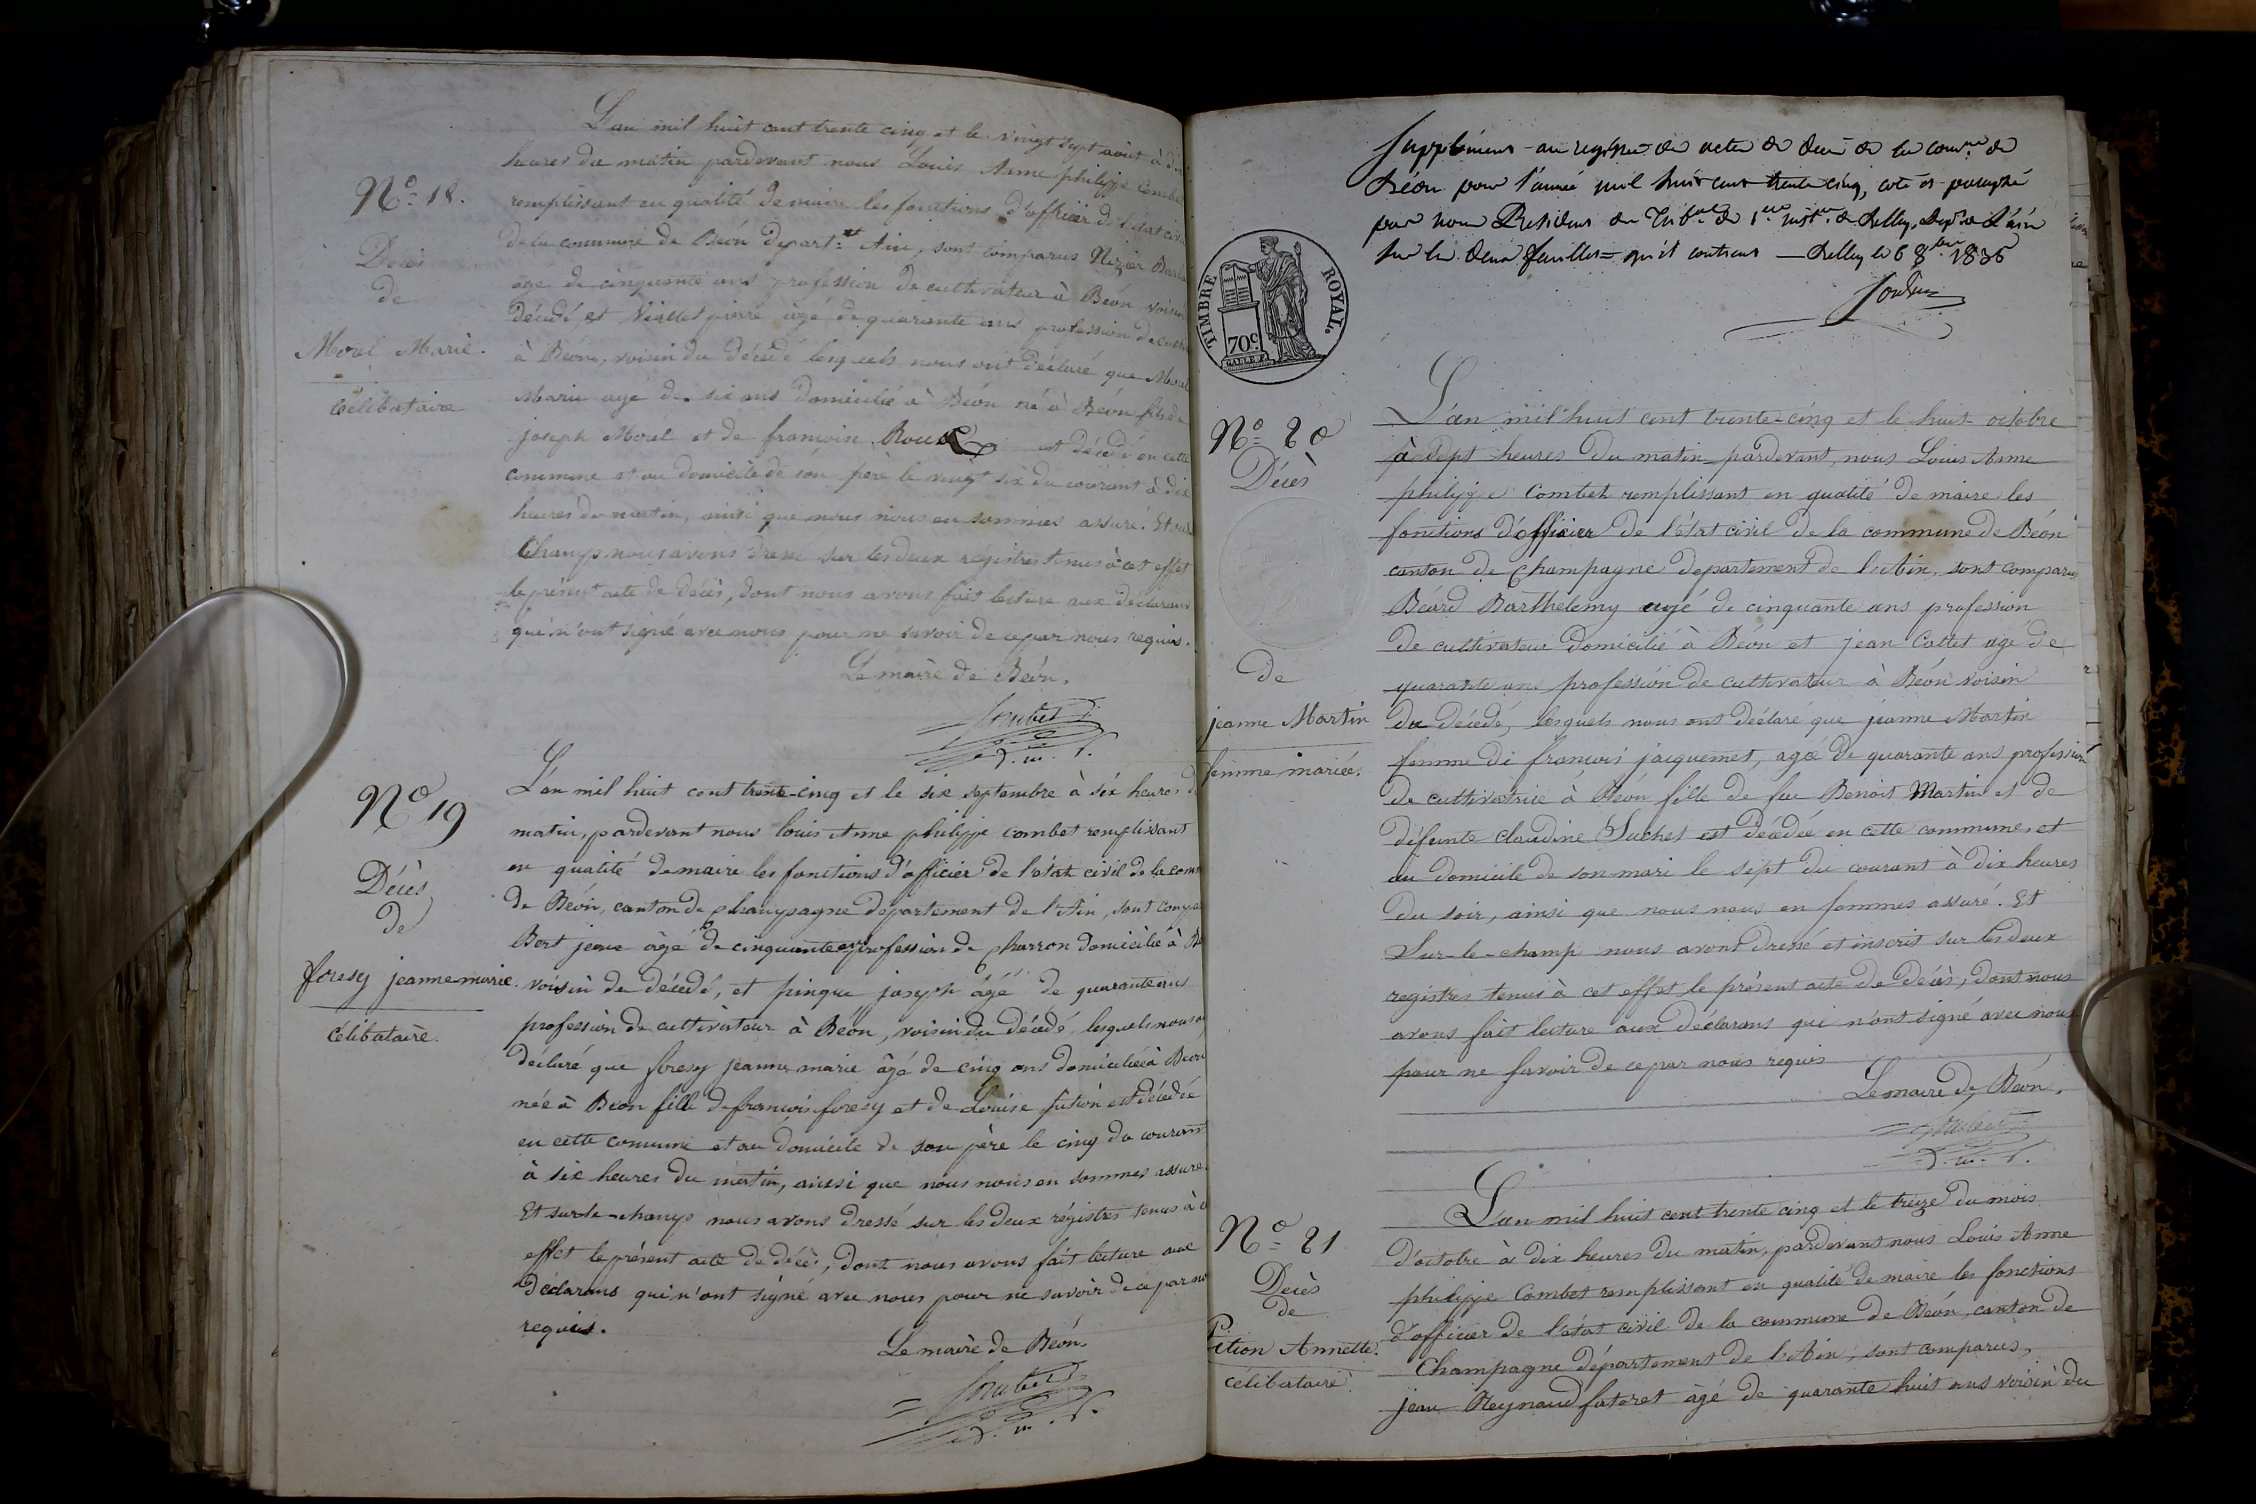 L'an mil huit cent trente cinq et le vingt sept août à dix
heures du matin pardevant nous Louis Anne philippe Combet
remplissant en qualité de maire les fonctions d'officier de l'état civil
de la commune de Béon depart.nt Ain, sont comparus Nizier
âgé de cinquante ans profession de cultivateur à Béon voisin
décédé, et Viallet pierre âgé de quarante ans profession de
à Béon, voisin du décédé lesquels nous ont déclaré que Morel
Marie agé de six ans domicilié à Béon né à Béon fils de
joseph Morel et de francoise Roux est décédé en cette
commune et au domicile de son père le vingt six du courant à dix
heures du matin, ainsi que nous nous en sommes assuré. Et sur le
Champ nous avons dressé sur les deux registres tenus à cet effet
le présent acte de décès, dont nous avons fait lecture aux déclarans
qui n'ont signé avec nous pour ne savoir de ce par nous requis.
Le maire de Béon.
Combet
d. m. f.
No. 18.
Décès
de
Morel Marie.
Célibataire
L'an mil huit cent trente-cinq et le six septembre à six heures du
matin, pardevant nous louis Anne philippe combet remplissant
en qualité de maire les fonctions d'officier de l'état civil de la com
de Béon, canton de Champagne département de l'Ain, sont compa
Bert jean âgé de cinquante ans profession de charron domicilié à Bé
voisin de décédé, et pingue joseph âgé de quarante ans
profession de cultivateur à Béon, voisin du décédé lesquels nous o
déclaré que foresy jeanne marie âgé de cinq ans domiciliée à Béon
née à Béon fille de francois foresy et de Louise est décédée
en cette comune et au domicile de son père le cinq du courant
à six heures du matin, ainsi que nous nous en sommes assuré.
Et sur le-champ nous avons dressé sur les deux régistres tenus à c
effet le présent acte de décès, dont nous avons fait lecture aux
declarans qui n'ont signé avec nous pour ne savoir de ce par no
requis.
Le maire de Béon.
Combet
d. m. f.
No 19
Décès
de
foresy jeanne-marie.
Célibataire.
Supplément au registre des actes de décès de la com.ne de
Béon pour l'année mil huit cent trente cinq, coté et paraphé
par nous Président du Trib.al de 1ere inst.ce de Belley, Dep.t de l'ain
sur les deux feuilles qu'il contient — Belley le 6 8.bre 1835
TIMBRE ROYAL.
70c.
No. 20
Décès
de
jeanne Martin
femme mariée.
L'an mil huit cent trente-cinq et le huit octobre
à sept heures du matin pardevant, nous Louis Anne
philippe Combet remplissant en qualité de maire les
fonctions d'officier de l'état civil de la commune de Béon
canton de Champagne departement de l'Ain, sont comparus
Béard Barthélemy agé de cinquante ans profession
de cultivateur domicilié à Béon et jean Callet agé de
quarante ans profession de cultivateur à Béon voisin
du décédé, lesquels nous ont déclaré que jeanne Martin
femme de francois jacquemet, agée de quarante ans profession
de cultivatrice à Béon fille de feu Benoit Martin et de
défunte claudine Suchet est décédée en cette commune, et
au domicile de son mari le sept du courant à dix heures
du soir, ainsi que nous nous en sommes assuré. Et
Sur-le-champ nous avons dressé et inscrit sur les deux
registres tenus à cet effet, le présent acte de décès, dont nous
avons fait lecture aux déclarans qui n'ont signé avec nous
pour ne savoir de ce par nous requis
Le maire de Béon.
Combet
d. m. f.
No. 21
Decès
de
Pition Annette.
célibataire.
L'an mil huit cent trente cinq et le treize du mois
d'octobre à dix heures du matin, pardevant nous Louis Anne
philippe Combet remplissant en qualité de maire les fonctions
d'officier de l'état civil de la commune de Béon, canton de
Champagne département de l'Ain, sont comparus,
jean Reynaud fatoret âgé de quarante huit ans voisin du